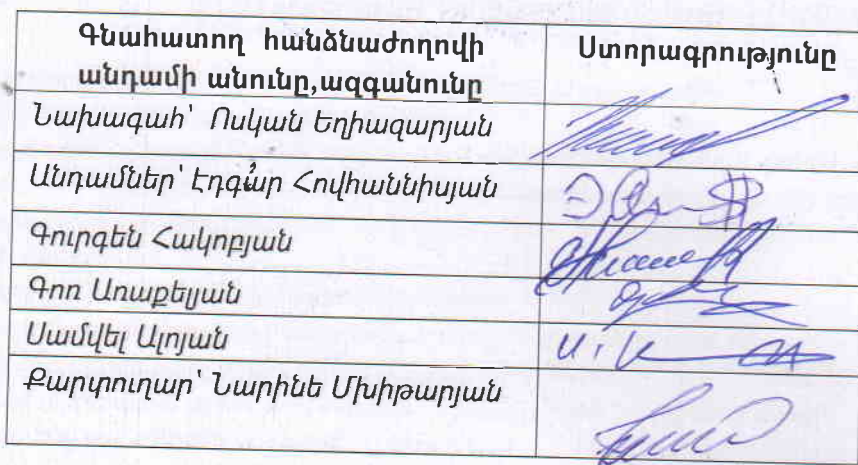 Գնահատող հանձնաժողովի Ստորագրությունը
անդամի անունը,ազգանունը
Նախագահ՝ Ոսկան Եղիազարյան
Անդամներ՝ Էդգար Հովհաննիսյան
Գուրգեն Հակոբյան
Գոռ Առաքելյան
Սամվել Ալոյան
Քարտուղար՝ Նարինե Մխիթարյան